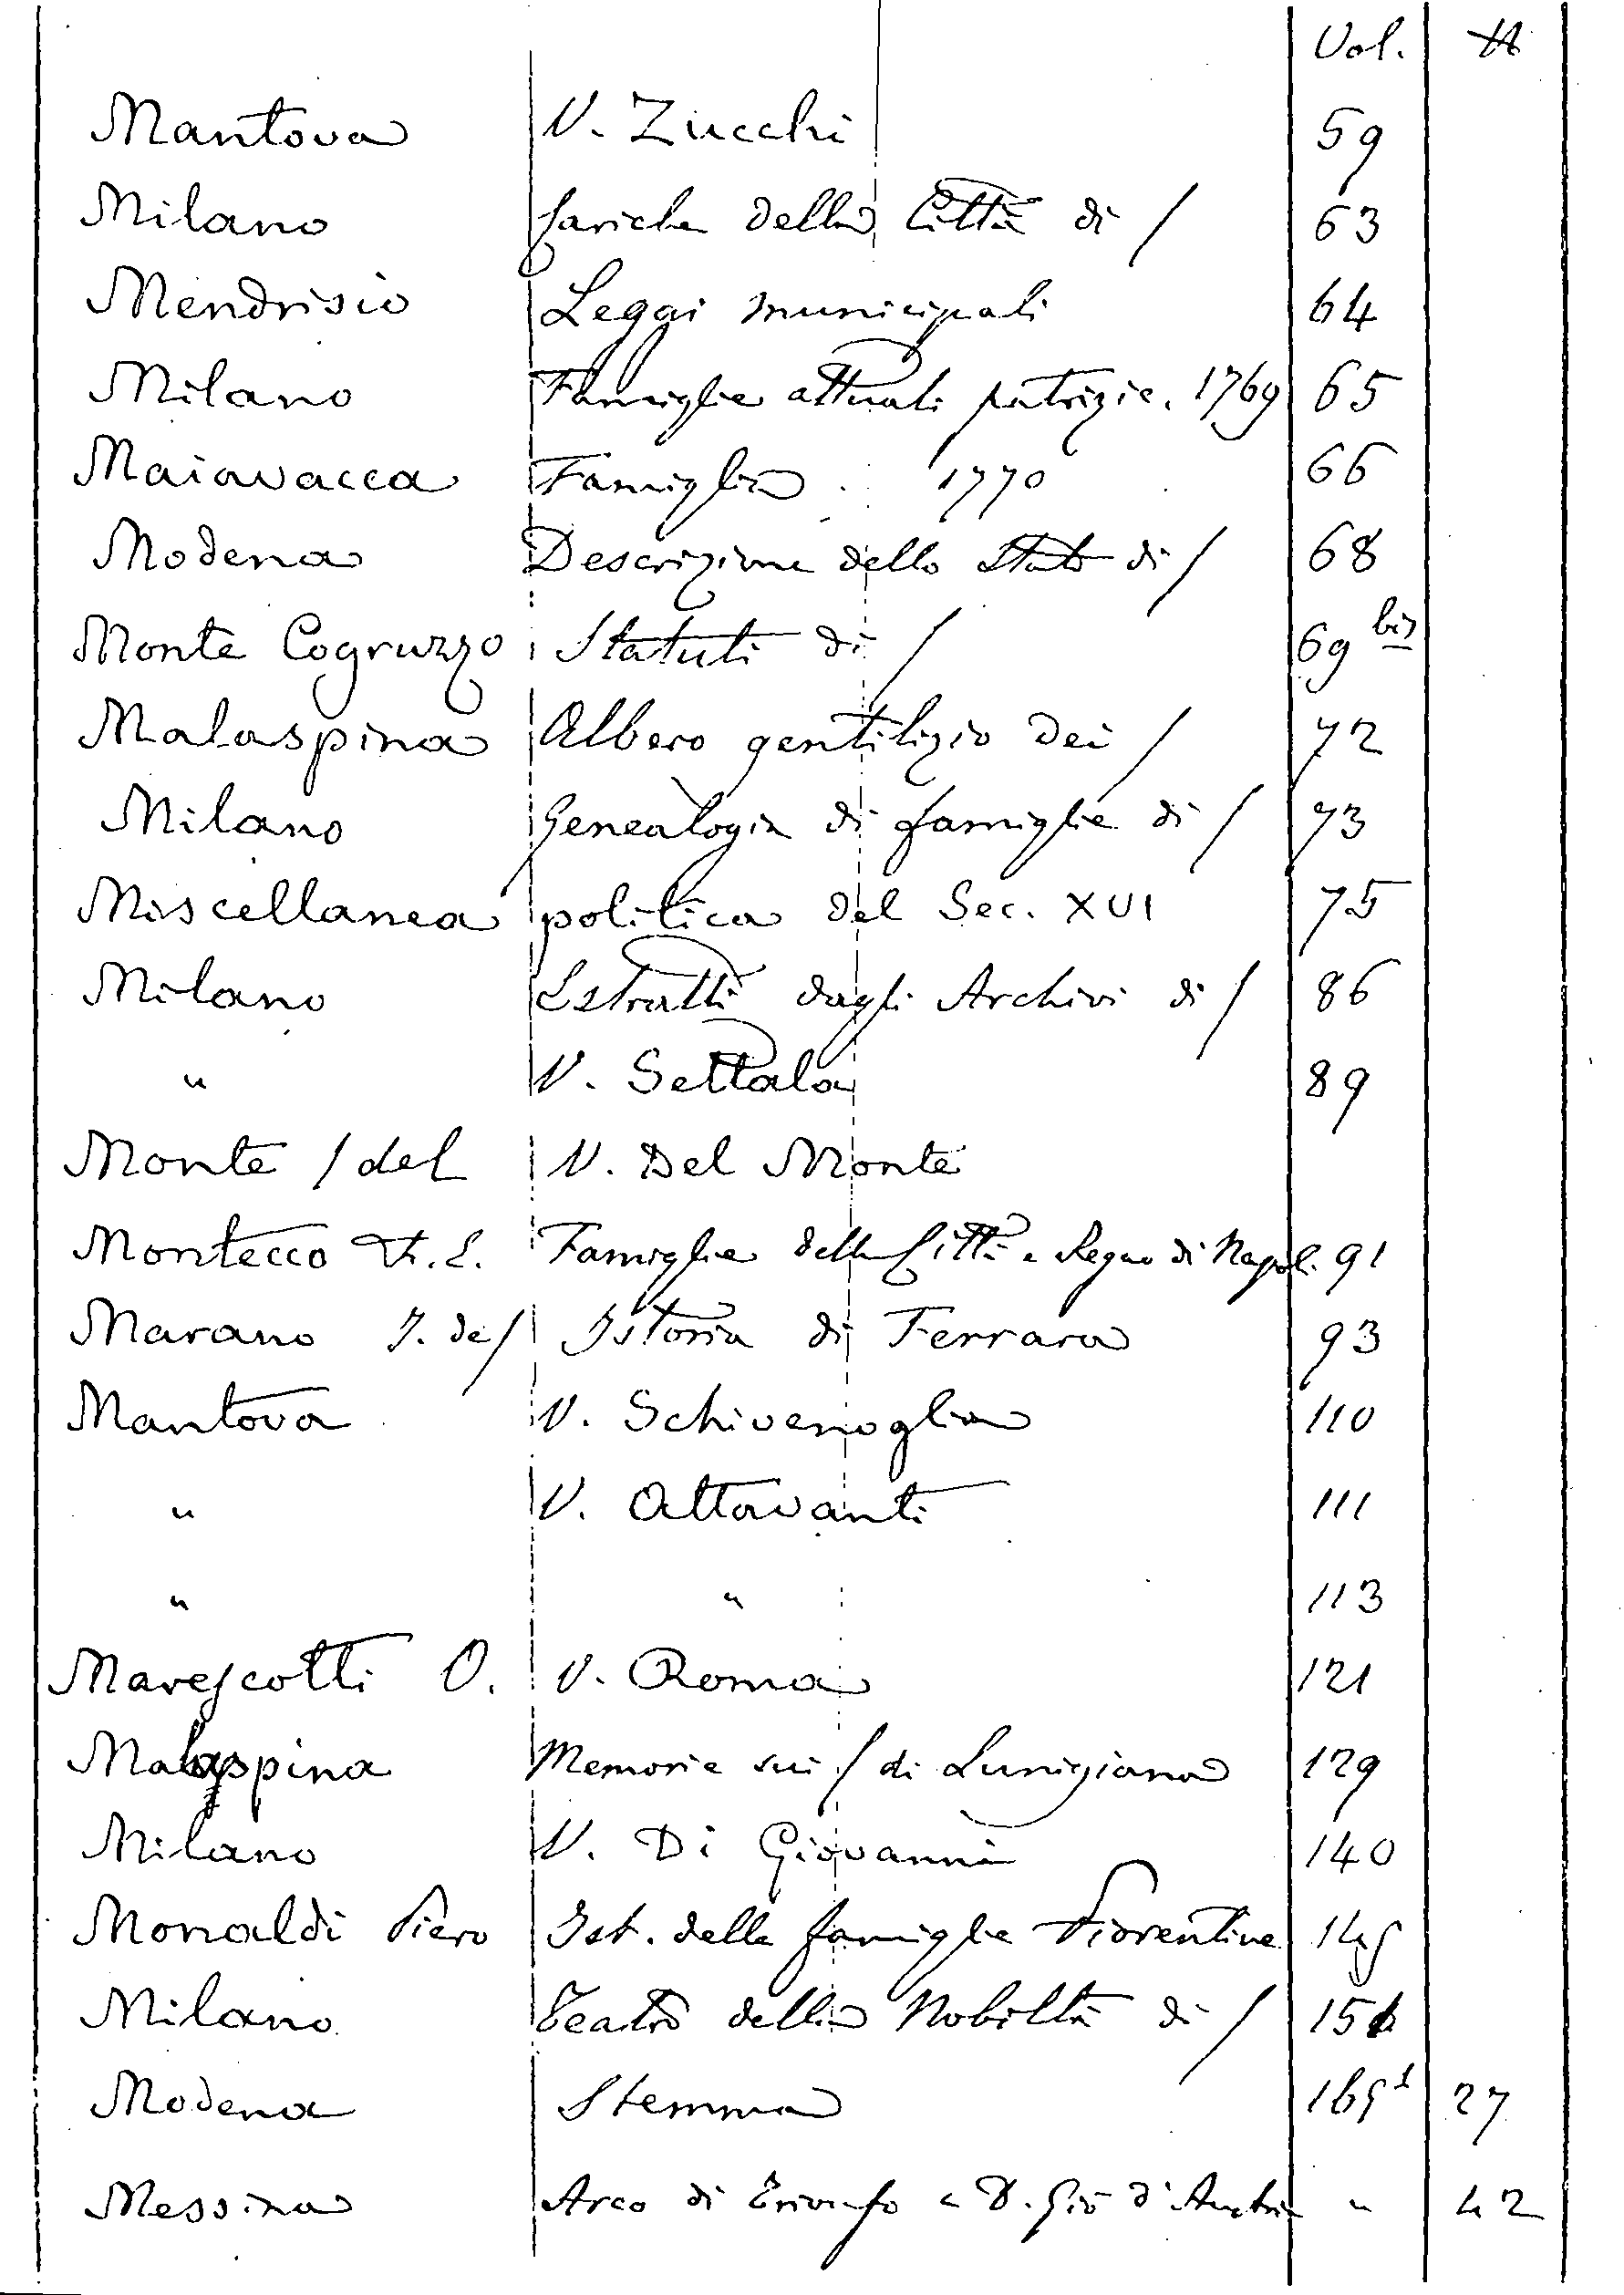 Vol. №
Mantova V. Zucchi 59
Milano Cariche della Città di / 63
Mendrisio Leggi municipali 64
Milano Famiglie attuali patrizie. 1769 65
Maiavacca Famiglia 1770 66
Modena Descrizione dello Stato di / 68
Monte Cogruzzo Statuti di / 69 bis
Malaspina Albero gentilizio dei / 72
Milano Genealogia di famiglie di / 73
Miscellanea politica del Sec. XVI 75
Milano Estratti dagli Archivi di / 86
" V. Settala 89
Monte / del V. Del Monte
Montecco Fr. E. Famiglie della Città e Regno di Napoli 91
Marano J. de / Istoria di Ferrara 93
Mantova V. Schivenoglia 110
" V. Attavanti 111
" " 113
Marescotti O. V. Roma 121
Malaspina Memorie sui / di Lunigiana 129
Milano V. Di Giovanni 140
Monaldi Piero Ist. delle famiglie Fiorentine
Milano Teatro della Nobiltà di /
Modena Stemma 165¹ 27
Messina Arco di Trionfo a D. Giò d'Austria " 42